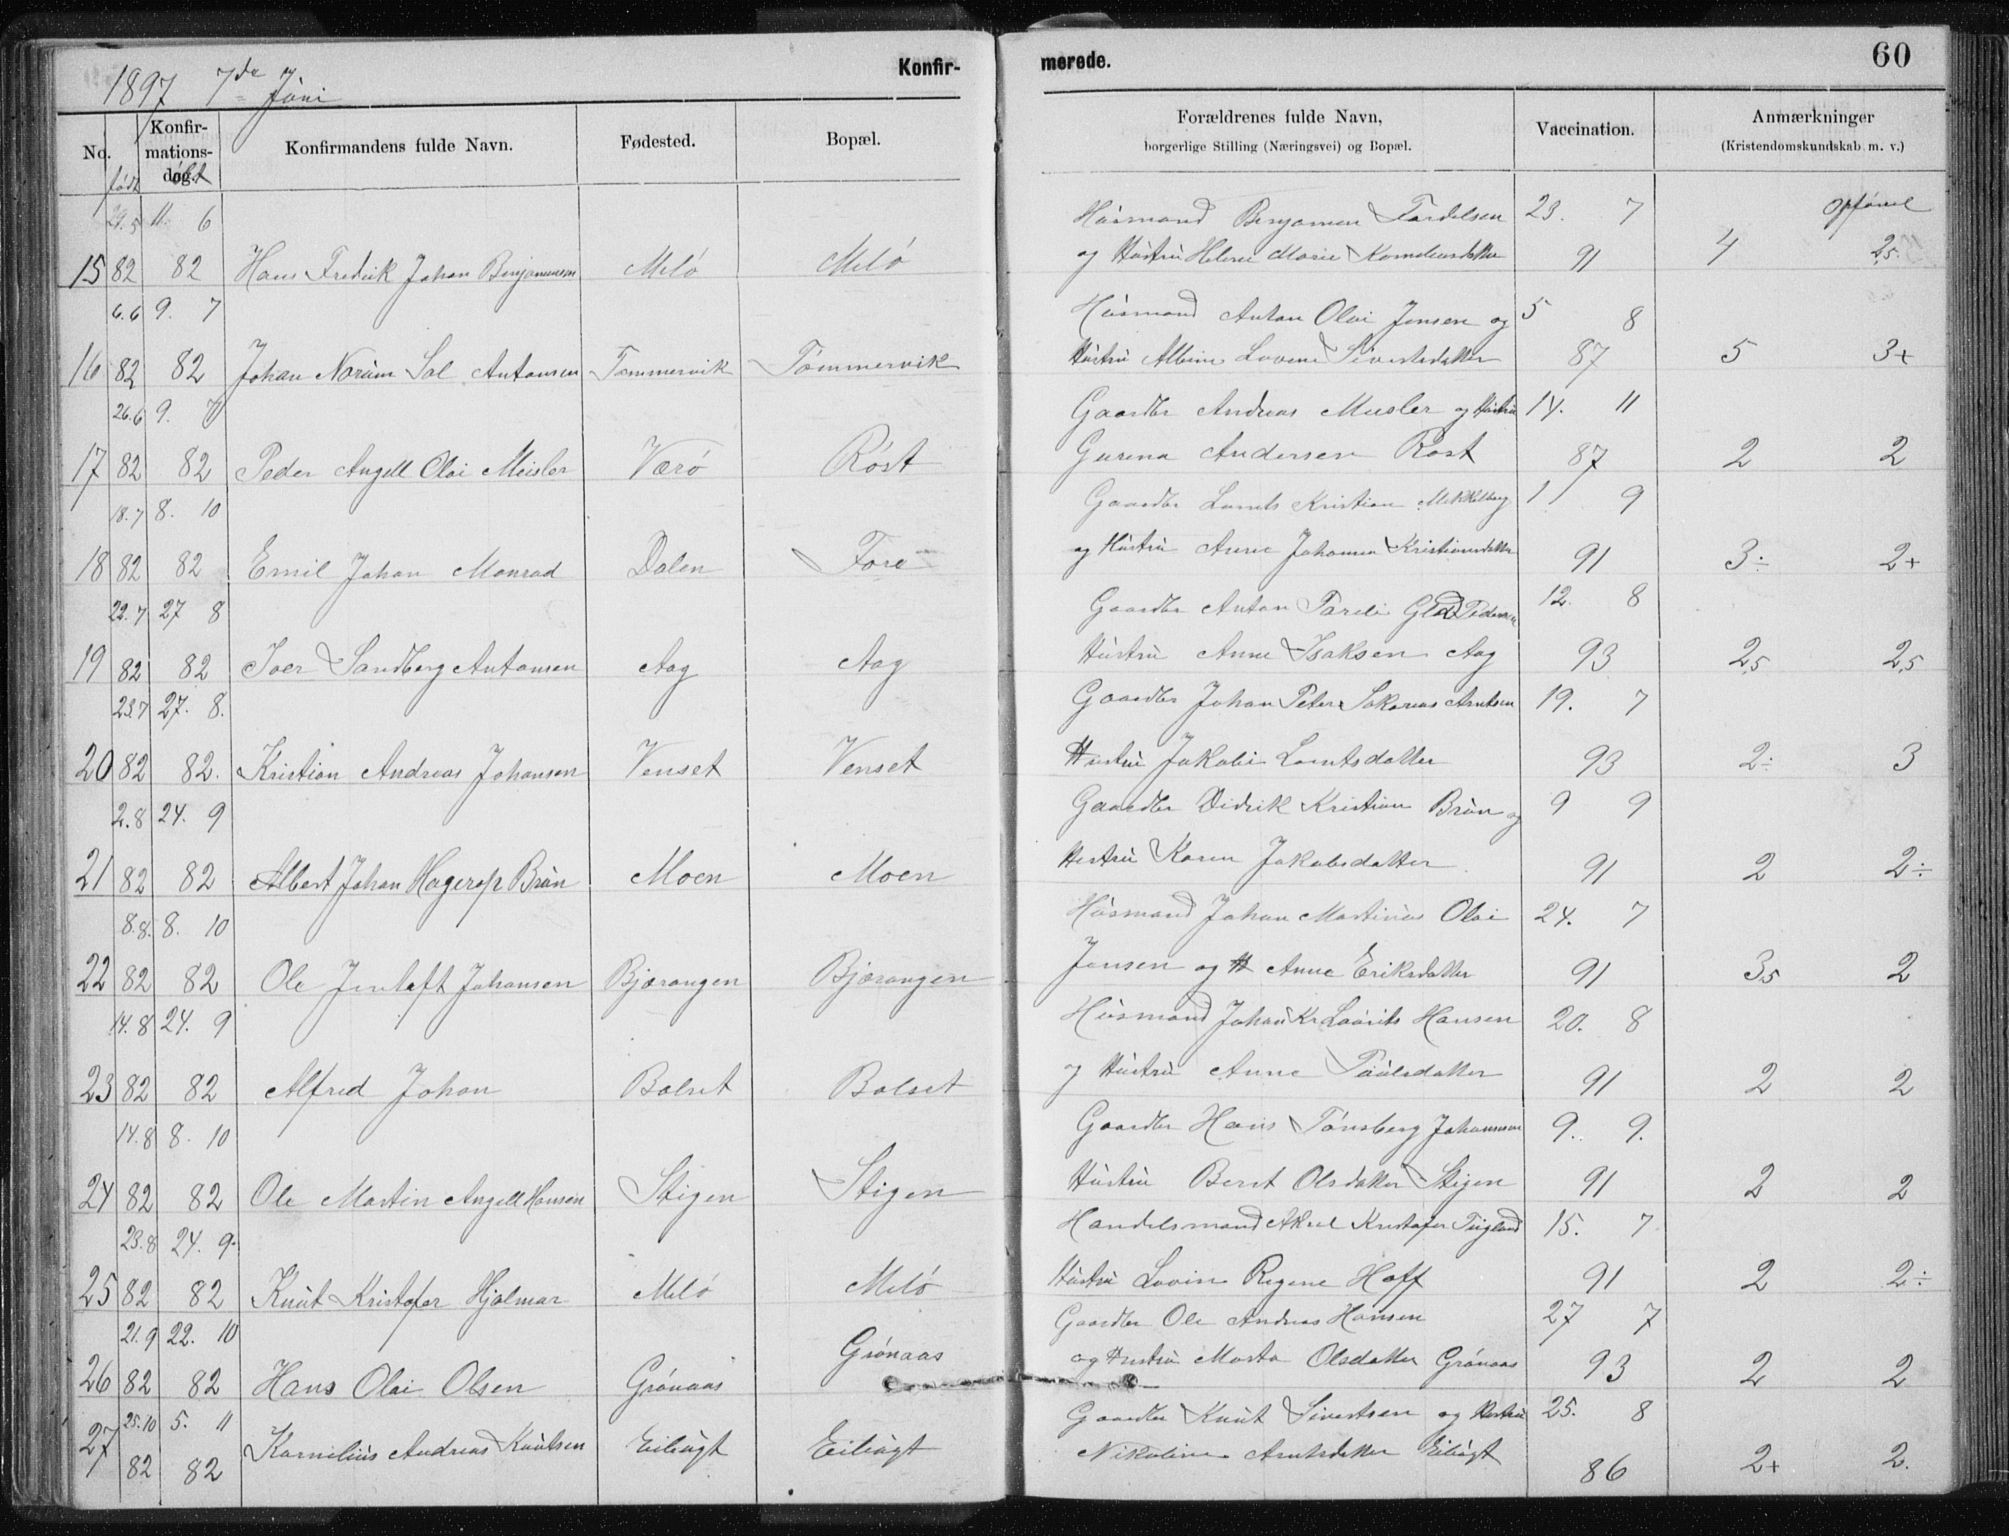 1897 7de Juni
Konfir-
merede.
60
No.
født
Konfir-
mations-
dag.
døbt
Konfirmandens fulde Navn.
Fødested.
Bopæl.
Forældrenes fulde Navn,
borgerlige Stilling (Næringsvei) og Bopæl.
Vaccination.
Anmærkninger
(Kristendomskundskab m. v.)
29.5 11. 6 Husmand Benjamin 23. 7 opførsel
15 82 82 Hans Fredrik Johan Benjaminsen Melø Melø og Hustru Helene Marie 91 4 2,5.
6.6 9. 7 Husmand Anton Olai Jensen og 5 8
16 82 82 Johan Norum Sol Antonsen Tømmervik Tømmervik Hustru Albine Lovene Sivertsdatter 87 5 3+
26.6 9. 7 Gaardbr Andreas Meisler og Hustru 14. 11
17 82 82 Peder Angell Olai Meisler Værø Røst Gurena Andersen Røst 87 2 2
18.7 8. 10 Gaardbr Lornts Kristian Mikkelborg 11 9
18 82 82 Emil Johan Monrad Dalen Fore og Hustru Anne Johanna Kristiansdatter 91 3÷ 2+
22.7 27 8 Gaardbr Anton Glad Pedersen 12. 8
19 82 82 Iver Sandberg Antonsen Aag Aag Hustru Anne Isaksen Aag 93 2,5 2,5
23.7 27. 8. Gaardbr Johan Peter Sakarias Arntsen 19. 7
20 82 82. Kristian Andreas Johansen Venset Venset Hustru Jakobi Lorntsdatter 93 2÷ 3
2.8 24. 9 Gaardbr Didrik Kristian Brun og 9 9
21 82 82 Albert Johan Hagerop Brun Moen Moen Hustru Karen Jakobsdatter 91 2 2÷
8.8. 8. 10 Husmand Johan Martinus Olai 24. 7
22 82 82 Ole Jentoft Johansen Bjærangen Bjærangen Jensen og H Anne Eriksdatter 91 3,5 2
14.8 24. 9 Husmand Johan Kr Laurits Hansen 20. 8
23 82 82 Alfred Johan Bolset Bolset og Hustru Anne Paulsdatter 91 2 2
14.8 8. 10 Gaardbr Hans Tønsberg Johannesen 9. 9.
24 82 82 Ole Martin Angell Hansen Stigen Stigen Hustru Beret Olsdatter Stigen 91 2 2
23.8 24. 9. Handelsmand Aksel Kristofer 15. 7
25 82 82 Knut Kristofer Hjalmar Melø Melø Hustru Lovise Regine Hoff 91 2 2÷
21.9 22. 10 Gaardbr Ole Andreas Hansen 27 7
26 82 82 Hans Olai Olsen Grønaas Grønaas og Hustru Marta Olsdatter Grønaas 93 2 2
25.10 5. 11 Gaardbr Knut Sivertsen og Hustru 25. 8
27 82 82 Kornelius Andreas Knutsen Eilvagt Eilvagt Nikoline Arntsdatter Eilvagt 86 2+ 2.